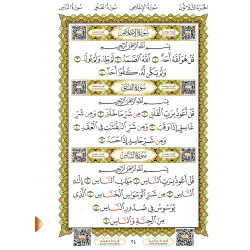 الجزء الثلاثون سورة الإخلاص سورة الفلق سورة الناس
سورة الإخلاص
بسم الله الرحمن الرحيم
قُلْ هُوَ اللَّهُ أَحَدٌ ۝ اللَّهُ الصَّمَدُ ۝ لَمْ يَلِدْ وَلَمْ يُولَدْ ۝
وَلَمْ يَكُن لَّهُ كُفُوًا أَحَدٌ ۝
سورة الفلق
بسم الله الرحمن الرحيم
قُلْ أَعُوذُ بِرَبِّ الْفَلَقِ ۝ مِن شَرِّ مَا خَلَقَ ۝ وَمِن شَرِّ
غَاسِقٍ إِذَا وَقَبَ ۝ وَمِن شَرِّ النَّفَّاثَاتِ فِي الْعُقَدِ ۝
وَمِن شَرِّ حَاسِدٍ إِذَا حَسَدَ ۝
سورة الناس
بسم الله الرحمن الرحيم
قُلْ أَعُوذُ بِرَبِّ النَّاسِ ۝ مَلِكِ النَّاسِ ۝
إِلَٰهِ النَّاسِ ۝ مِن شَرِّ الْوَسْوَاسِ الْخَنَّاسِ ۝ الَّذِي
يُوَسْوِسُ فِي صُدُورِ النَّاسِ ۝
مِنَ الْجِنَّةِ وَالنَّاسِ ۝